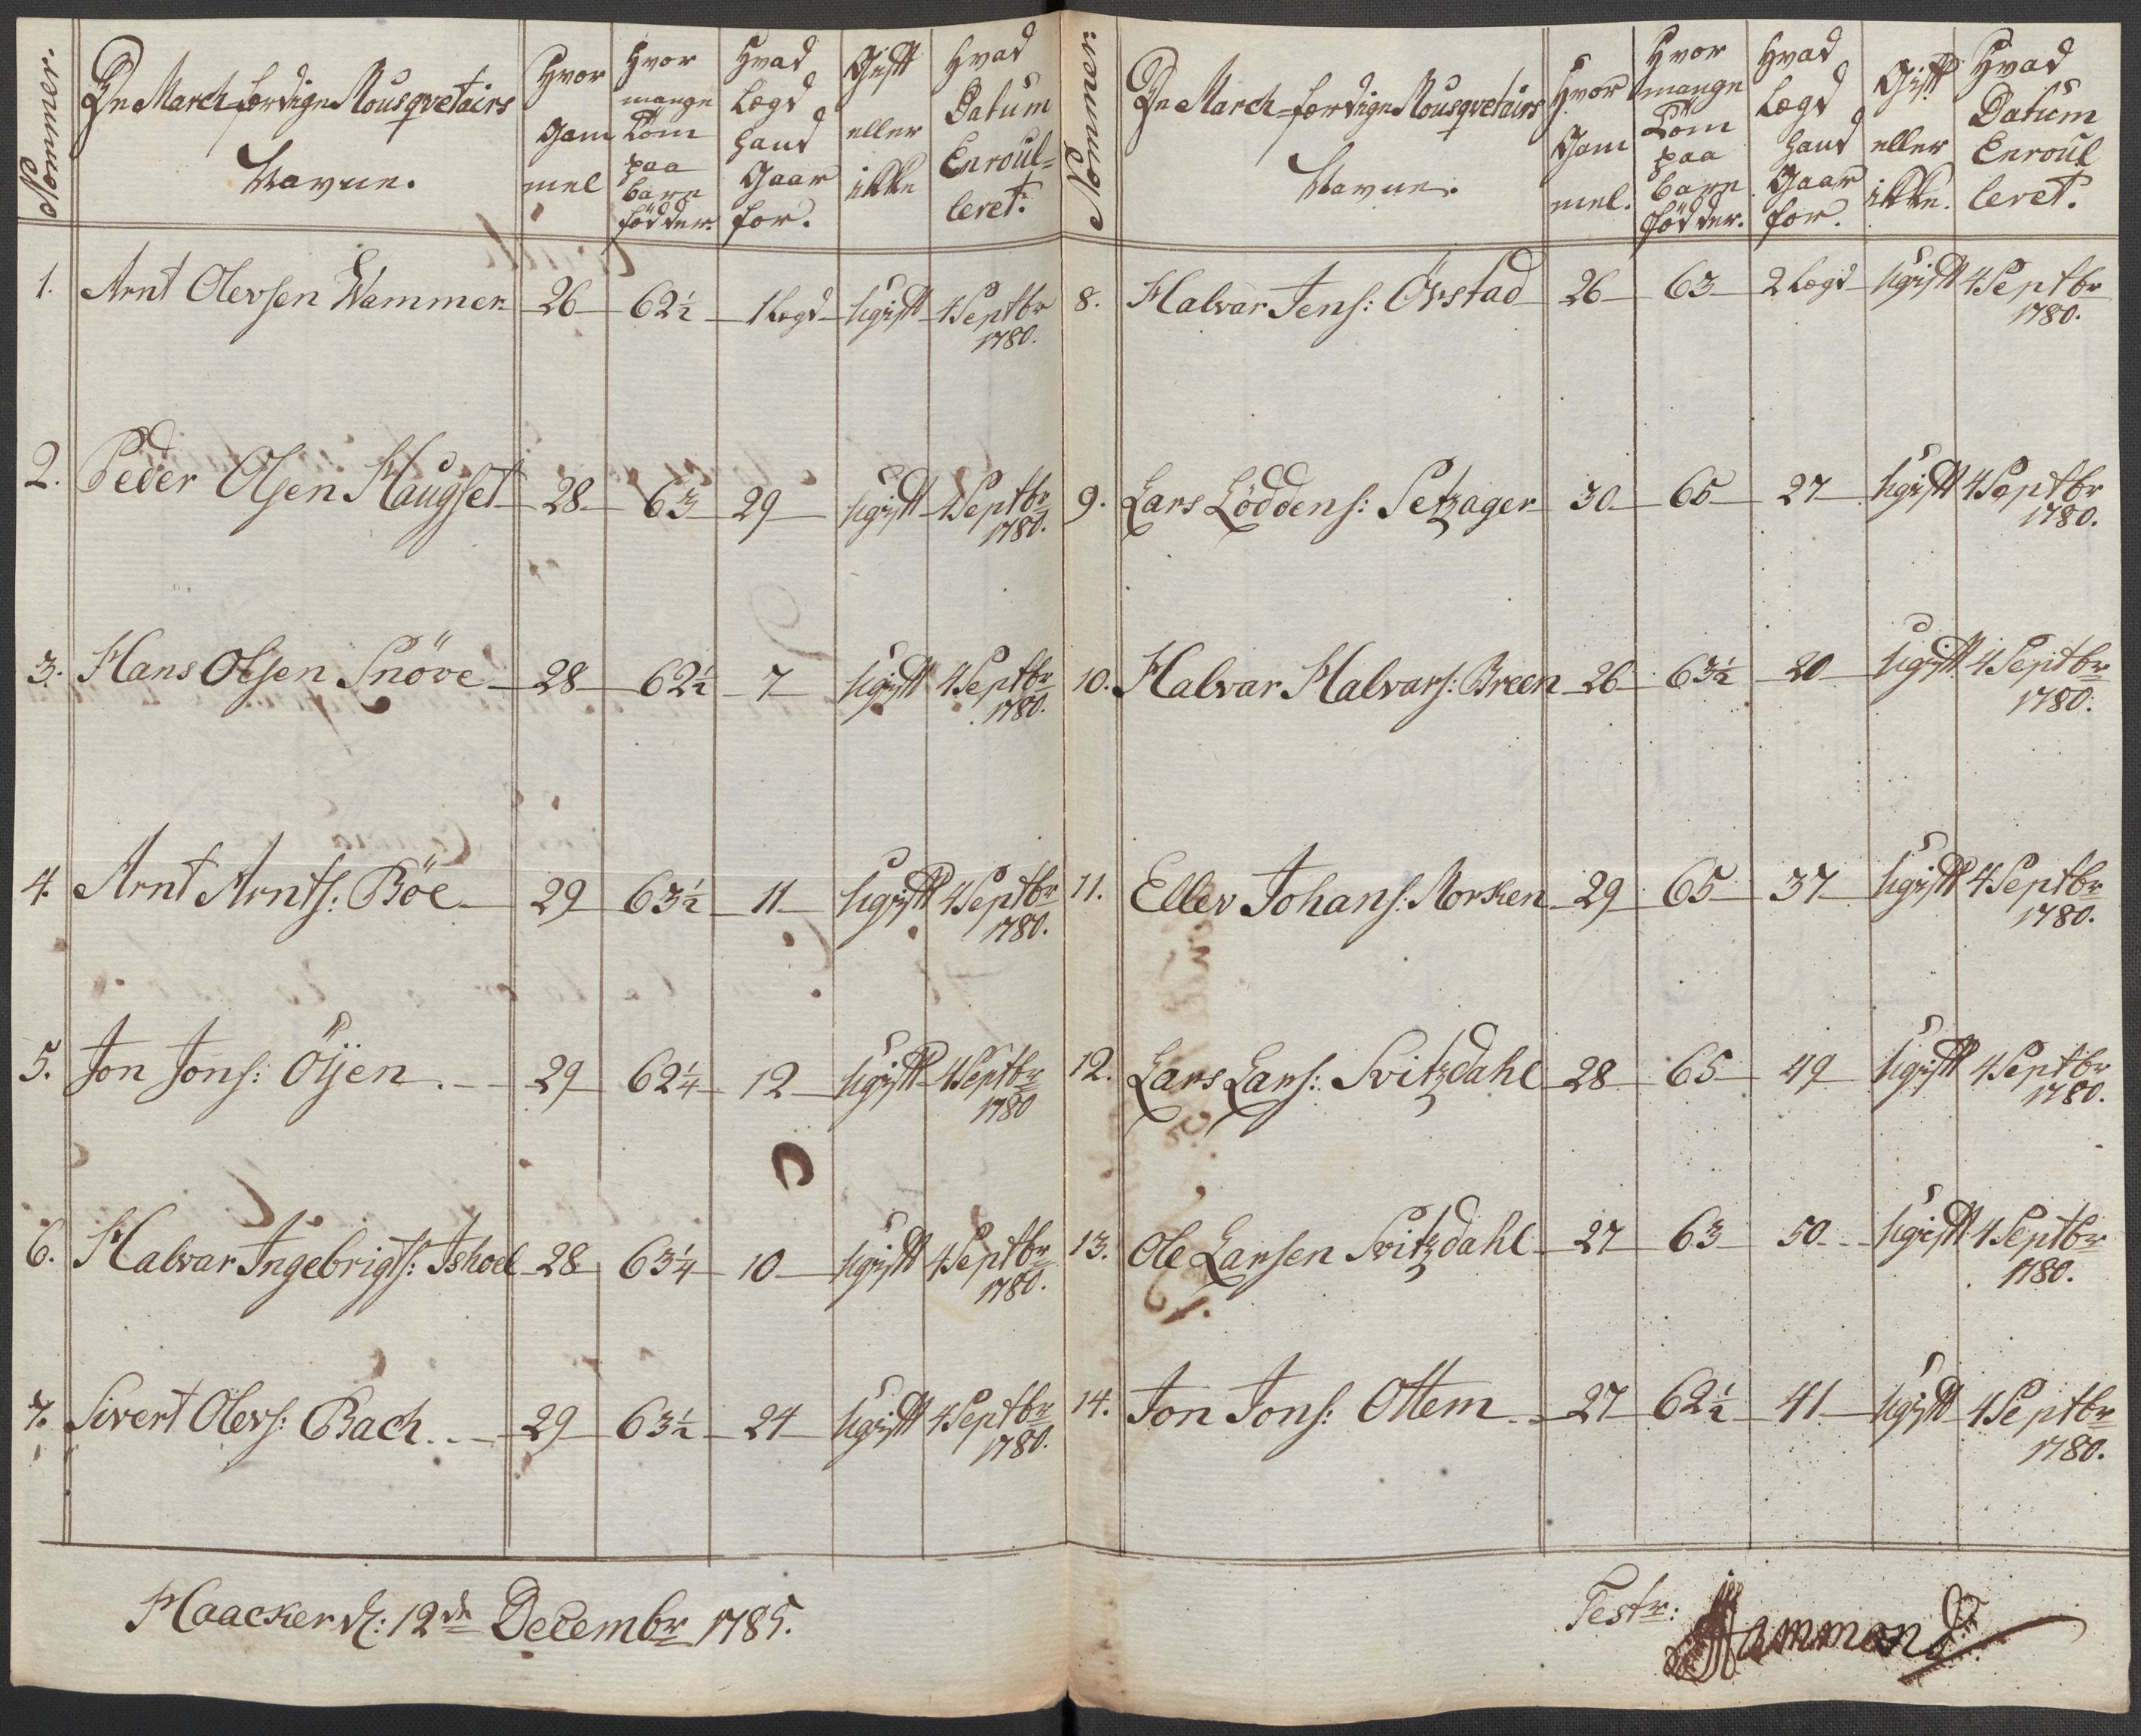 Nommer.
De March-færdige Mousqvetairs
Navne.
Hvor
Gam
mel
Hvor
mange
Tom
paa
bare
födder.
Hvad
Lægd
hand
Gaar
for.
Gift
eller
ikke
Hvad
Datum
Enroul-
leret.
1. Arnt Olevsen Wammer 26 62½ 1 Lægd Ugift 4 Septbr
1780.
2. Peder Olsen Haugset 28 63 29 Ugift 4 Septbr
1780.
3. Hans Olsen Snöve 28 62½ 7 Ugift 4 Septbr
1780.
4. Arnt Arnts: Böe 29 63½ 11 Ugift 4 Septbr
1780.
5. Jon Jons: Öÿen 29 62¼ 12 Ugift 4 Septbr
1780
6. Halvar Ingebrigts: Ishoel 28 63¼ 10 Ugift 4 Septbr
1780.
7. Sivert Olevs: Bach 29 63½ 24 Ugift 4 Septbr
1780.
Haacker d: 12te Decembr 1785.
Nommer.
De March-færdige Mousqvetairs
Navne.
Hvor
Gam
mel.
Hvor
mange
Tom
paa
bare
födder.
Hvad
Lægd
hand
Gaar
for.
Gift
eller
ikke.
Hvad
Datum
Enroul
leret.
8. Halvar Jens: Örstad 26 63 2 Lægd Ugift 4 Septbr
1780.
9. Lars Löddens: Setzager 30 65 27 Ugift 4 Septbr
1780.
10. Halvar Halvars: Breen 26 63½ 20 Ugift 4 Septbr
1780.
11. Ellev Johans: Morken 29 65 37 Ugift 4 Septbr
1780.
12. Lars Lars: Svitzdahl 28 65 49 Ugift 4 Septbr
1780.
13. Ole Larsen Svitzdahl 27 63 50 Ugift 4 Septbr
1780.
14. Jon Jons: Ottem 27 62½ 41 Ugift 4 Septbr
1780.
Testr:
Hammond